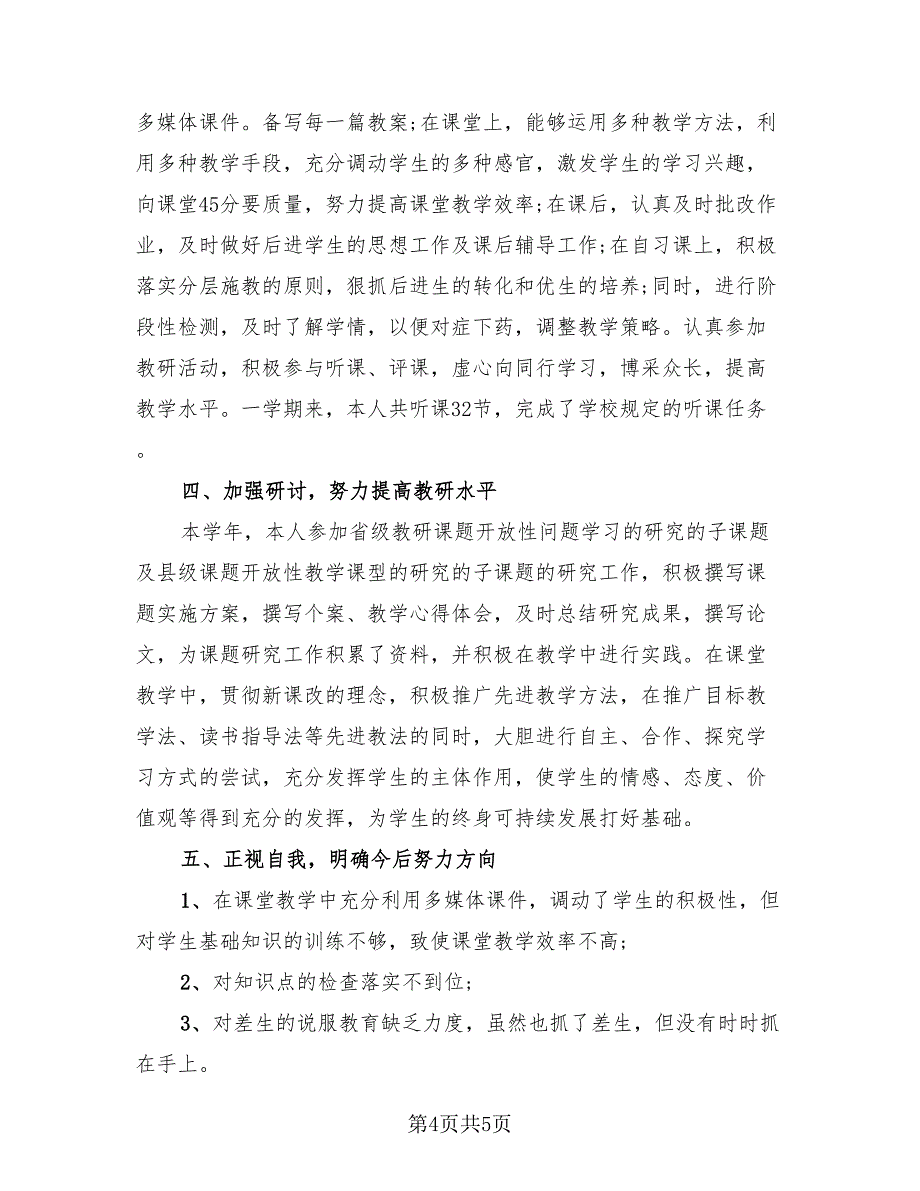 多媒体课件。备写每一篇教案;在课堂上，能够运用多种教学方法，利
用多种教学手段，充分调动学生的多种感官，激发学生的学习兴趣，
向课堂45分要质量，努力提高课堂教学效率;在课后，认真及时批改作
业，及时做好后进学生的思想工作及课后辅导工作;在自习课上，积极
落实分层施教的原则，狠抓后进生的转化和优生的培养;同时，进行阶
段性检测，及时了解学情，以便对症下药，调整教学策略。认真参加
教研活动，积极参与听课、评课，虚心向同行学习，博采众长，提高
教学水平。一学期来，本人共听课32节，完成了学校规定的听课任务
。
四、加强研讨，努力提高教研水平
本学年，本人参加省级教研课题开放性问题学习的研究的子课题
及县级课题开放性教学课型的研究的子课题的研究工作，积极撰写课
题实施方案，撰写个案、教学心得体会，及时总结研究成果，撰写论
文，为课题研究工作积累了资料，并积极在教学中进行实践。在课堂
教学中，贯彻新课改的理念，积极推广先进教学方法，在推广目标教
学法、读书指导法等先进教法的同时，大胆进行自主、合作、探究学
习方式的尝试，充分发挥学生的主体作用，使学生的情感、态度、价
值观等得到充分的发挥，为学生的终身可持续发展打好基础。
五、正视自我，明确今后努力方向
1、在课堂教学中充分利用多媒体课件，调动了学生的积极性，但
对学生基础知识的训练不够，致使课堂教学效率不高;
2、对知识点的检查落实不到位;
3、对差生的说服教育缺乏力度，虽然也抓了差生，但没有时时抓
在手上。
第4页共5页